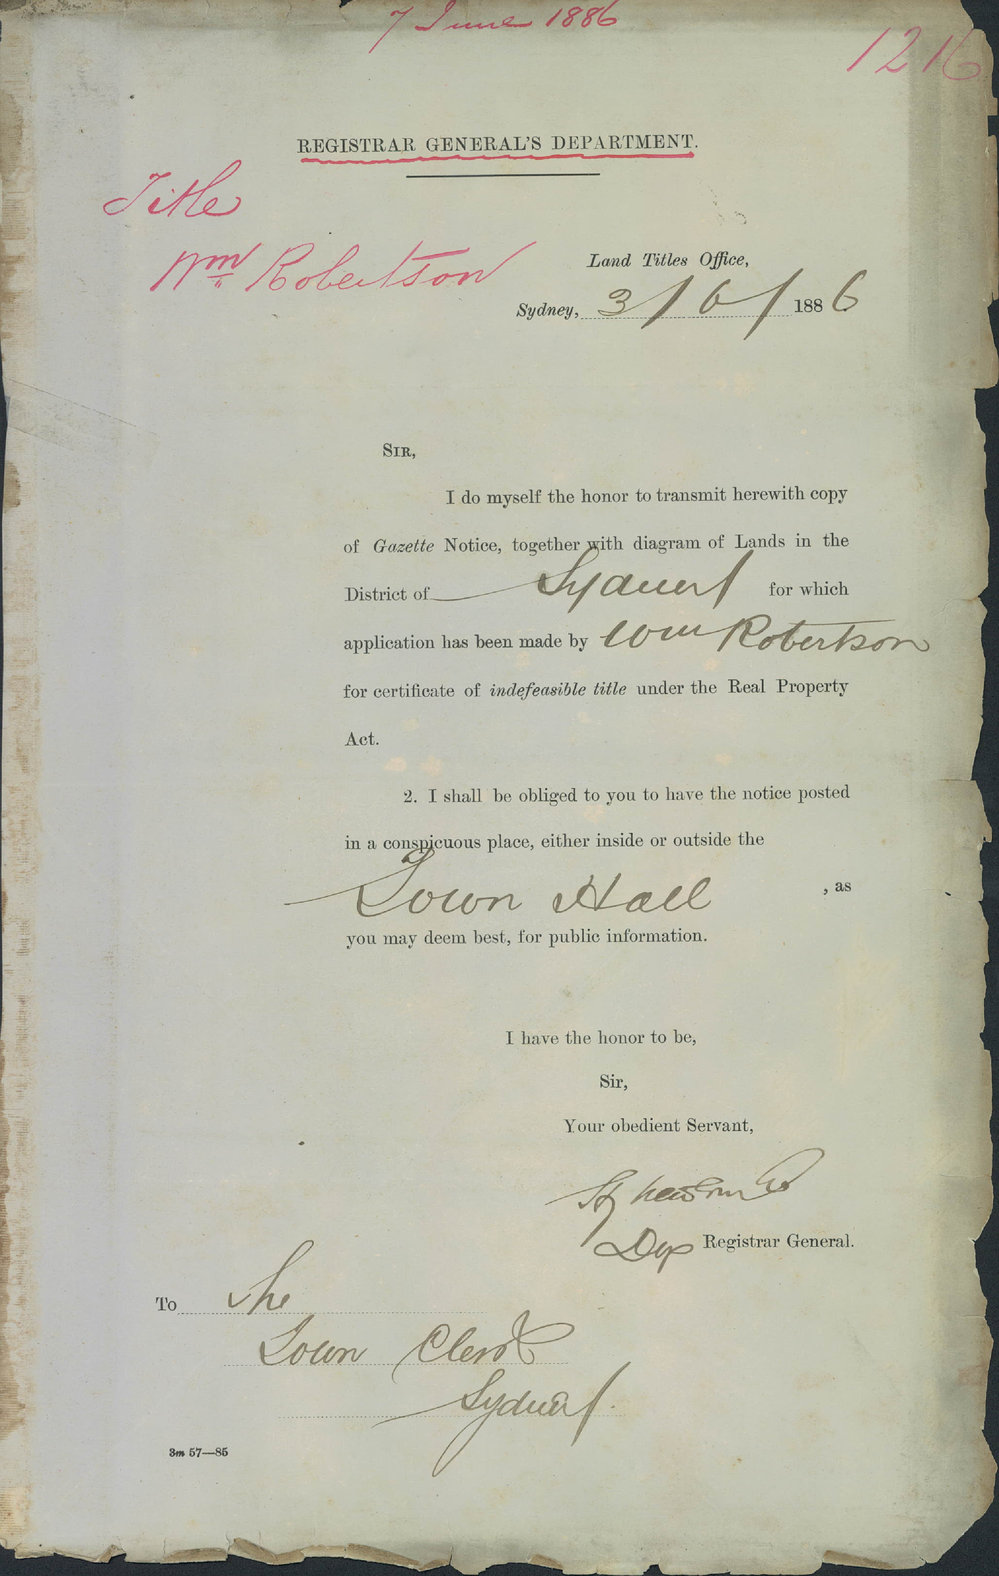 7 June 1886
1216
REGISTRAR GENERAL'S DEPARTMENT.
Title
Wm Robertson
Land Titles Office,
Sydney, 3/6/1886
SIR,
I do myself the honor to transmit herewith copy
of Gazette Notice, together with diagram of Lands in the
District of Sydney for which
application has been made by Wm Robertson
for certificate of indefeasible title under the Real Property
Act.
2. I shall be obliged to you to have the notice posted
in a conspicuous place, either inside or outside the
Town Hall , as
you may deem best, for public information.
I have the honor to be,
Sir,
Your obedient Servant,
Dep Registrar General.
To The
Town Clerk
Sydney.
3m 57—85